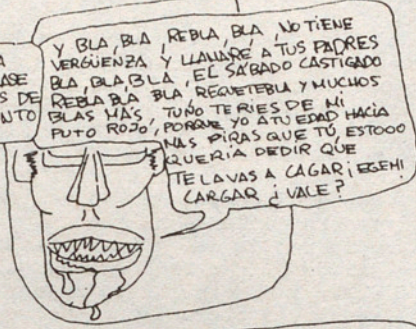 A
ASE
S DE
NTO
Y BLA, BLA, REBLA, BLA, NO TIENE
VERGÜENZA Y LLAMARÉ A TUS PADRES
BLA, BLA, BLA, EL SÁBADO CASTIGADO
REBLA BLA BLA, REQUETEBLA Y MUCHOS
BLAS MÁS, TU NO TE RIES DE MI
PUTO ROJO, PORQUE YO A TU EDAD HACIA
MAS PIRAS QUE TÚ, ESTOOO
QUERIA DEDIR QUE
TE LA VAS A CAGAR ¡EGEM!
CARGAR ¿VALE?